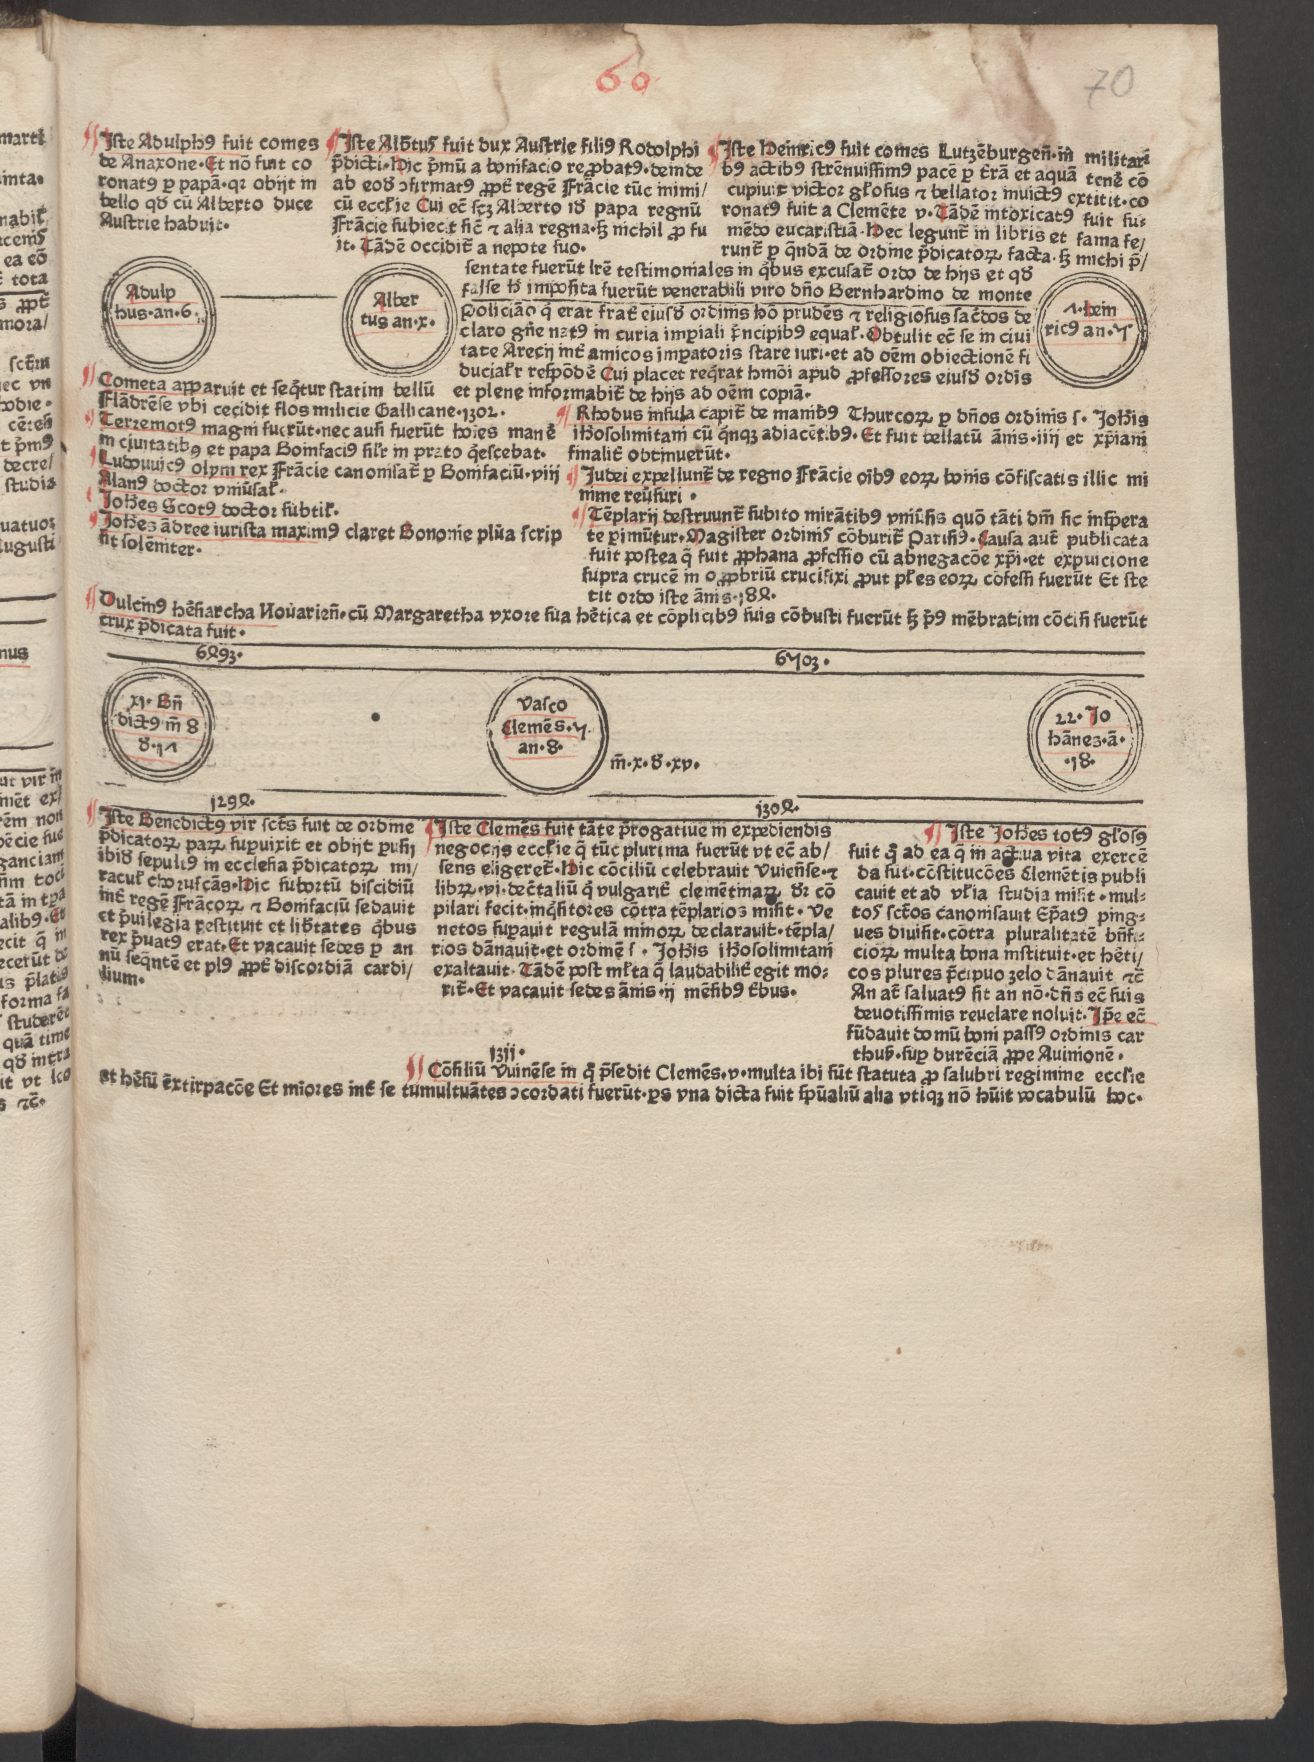 60
70
Iste Adulphꝰ fuit comes
de Anaxone. Et nō fuit co
ronatꝰ ꝑ papā. qꝛ obijt in
bello qđ cū Alberto duce
Austrie habuit.
Iste Alb̄tus fuit dux Austrie filiꝰ Rodolphi
p̄dicti. Hic p̄mū a bonifacio reꝓbatꝰ. deinde
ab eod̄ ꝯfirmatꝰ ꝓpt̄ regē Frācie tūc inimi/
cū eccl̄ie Cui ec̄ scꝫ Alberto id̄ papa regnū
Frācie subiecit sic̄ ⁊ alia regna. sꝫ nichil ꝓ fu
it. Tādē occidit̄ a nepote suo.
Iste Heinricꝰ fuit comes Lutzēburgen̄. in militari
bꝰ actibꝰ strēnuissimꝰ pacē ꝑ t̄rā et aquā tenē cō
cupiuit victor gl̄osus ⁊ bellator inuictꝰ extitit. co
ronatꝰ fuit a Clemēte v. Tādē intoxicatꝰ fuit su-
mēdo eucaristiā. Hec legunt̄ in libris et fama fe/
runt̄ ꝑ qn̄dā de ordine p̄dicatoꝝ facta. sꝫ michi p̄/
sentate fuerūt lr̄e testimoniales in qͥbus excusat̄ ordo de hijs et qđ
false id̄ imposita fuerūt venerabili viro dn̄o Bernhardino de monte
Policiāo qͥ erat frat̄ eiusd̄ ordinis hō prudēs ⁊ religiosus sac̄dos de
claro gn̄e natꝰ in curia imꝑiali p̄ncipibꝰ equal̄. Obtulit ec̄ se in ciui
tate Arecij int̄ amicos imꝑatoris stare iuri. et ad oēm obiectionē fi
ducial̄r respōdē Cui placet reqͥrat hmōi apud ꝓfessores eiusd̄ ordis
et plene informabit̄ de hijs ad oēm copiā.
Adulp
hus. an. 6.
Alber
tus an. x.
7. hein
ricꝰ an. 7
Cometa apparuit et seqͥtur statim bellū
Flādrēse vbi cecidit flos milicie Gallicane. 1302.
Terremotꝰ magni fuerūt. nec aūs̄ fuerūt hoīes manē
in ciuitatibꝰ et papa Bonifaciꝰ sil̄r in prato qͥescebat.
Ludouuicꝰ olym rex Frācie canonisat̄ ꝑ Bonifaciū. viij
Alanꝰ doctor vniūsal̄.
Joħes Scotꝰ doctor subtil̄.
Joħes ādree iurista maximꝰ claret Bononie plūa scrip
sit solēniter.
Rhodus insula capit̄ de manibꝰ Thurcoꝝ ꝑ dn̄os ordinis s. Joħis
iħosolimitani cū qͥnqꝫ adiacētibꝰ. Et fuit bellatū ānis. iiij et xp̄iani
finalit̄ obtinuerūt.
Judei expellunt̄ de regno Frācie oībꝰ eoꝝ bonis cōfiscatis illic mi
nime reūsuri.
Tēplarij destruunt̄ subito mirātibꝰ vniūsis quō tāti dn̄i sic inspera
te ꝑimūtur. Magister ordinis cōburit̄ Parisiꝰ. Causa aut̄ publicata
fuit postea qͥ fuit ꝓphana ꝓfessio cū abnegacōe xp̄i. et expuicione
supra crucē in oꝓbriū crucifixi ꝓut pl̄es eoꝝ cōfessi fuerūt Et ste
tit ordo iste ānis. 182.
Dulcinꝰ hēsiarcha Nouarien̄. cū Margaretha vxore sua hētica et cōplicibꝰ suis cōbusti fuerūt sꝫ p̄ꝰ mēbratim cōcisi fuerūt
crux p̄dicata fuit.
6293.
6703.
xi. Bn̄
dictꝰ m̄ 8
d. 17
Vasco
Clemēs. 7
an. 8.
m̄. x. d. xv.
22. Jo
hānes. ā.
.18.
1292.
1302.
Iste Benedictꝰ vir sct̄s fuit de ordine
p̄dicatoꝝ paꝝ suꝑuixit et obijt ꝑusij
ibid̄ sepultꝰ in ecclesia p̄dicatoꝝ mi/
racul̄ choruscās. Hic subortū discidiū
int̄ regē Frācoꝝ ⁊ Bonifaciū sedauit
et p̄uilegia restituit et lib̄tates qͥbus
rex p̄uatꝰ erat. Et vacauit sedes ꝑ an
nū seqn̄tē et plꝰ ꝓpt̄ discordiā cardi/
nalium.
Iste Clemēs fuit tāte p̄rogatiue in expediendis
negocijs eccl̄ie qͥ tūc plurima fuerūt vt ec̄ ab/
sens eligeret̄. Hic cōciliū celebrauit Vuiēn̄se. ⁊
libꝝ. vi. dec̄taliū qͥ vulgarit̄ clemētinaꝝ dr̄ cō
pilari fecit. inqͥsitores cōtra tēplarios misit. Ve
netos suꝑauit regulā minoꝝ declarauit. tēpla/
rios dānauit. et ordinē s. Joħis iħosolimitani
exaltauit. Tādē post ml̄ta qͥ laudabilit̄ egit mo-
rit̄. Et vacauit sedes ānis. ij mēsibꝰ t̄bus.
Iste Joħes totꝰ gl̄osꝰ
fuit qͥ ad ea qͥ in actiua vita exercē
da sūt. cōstitucōes Clemētis publi
cauit et ad vl̄ia studia misit. mul-
tos sct̄os canonisauit Ep̄atꝰ ping-
ues diuisit. cōtra pluralitatē bn̄fi-
cioꝝ multa bona instituit. et hēti/
cos plures p̄cipuo zelo dānauit ⁊c̄
An at̄ saluatꝰ sit an nō. dn̄s ec̄ suis
deuotissimis reuelare noluit. Ip̄e ec̄
fūdauit domū boni passꝰ ordinis car
thus̄. suꝑ durēciā ꝓpe Auinionē.
1311.
Cōsiliū Vuinēse in qͥ p̄sedit Clemēs. v. multa ibi sūt statuta ꝓ salubri regimine eccl̄ie
et hēsiū ēxtirpacōe Et mīores int̄ se tumultuātes ꝯcordati fuerūt. ꝑs vna dicta fuit sp̄ualiū alia vtiqꝫ nō hūit vocabulū hoc.